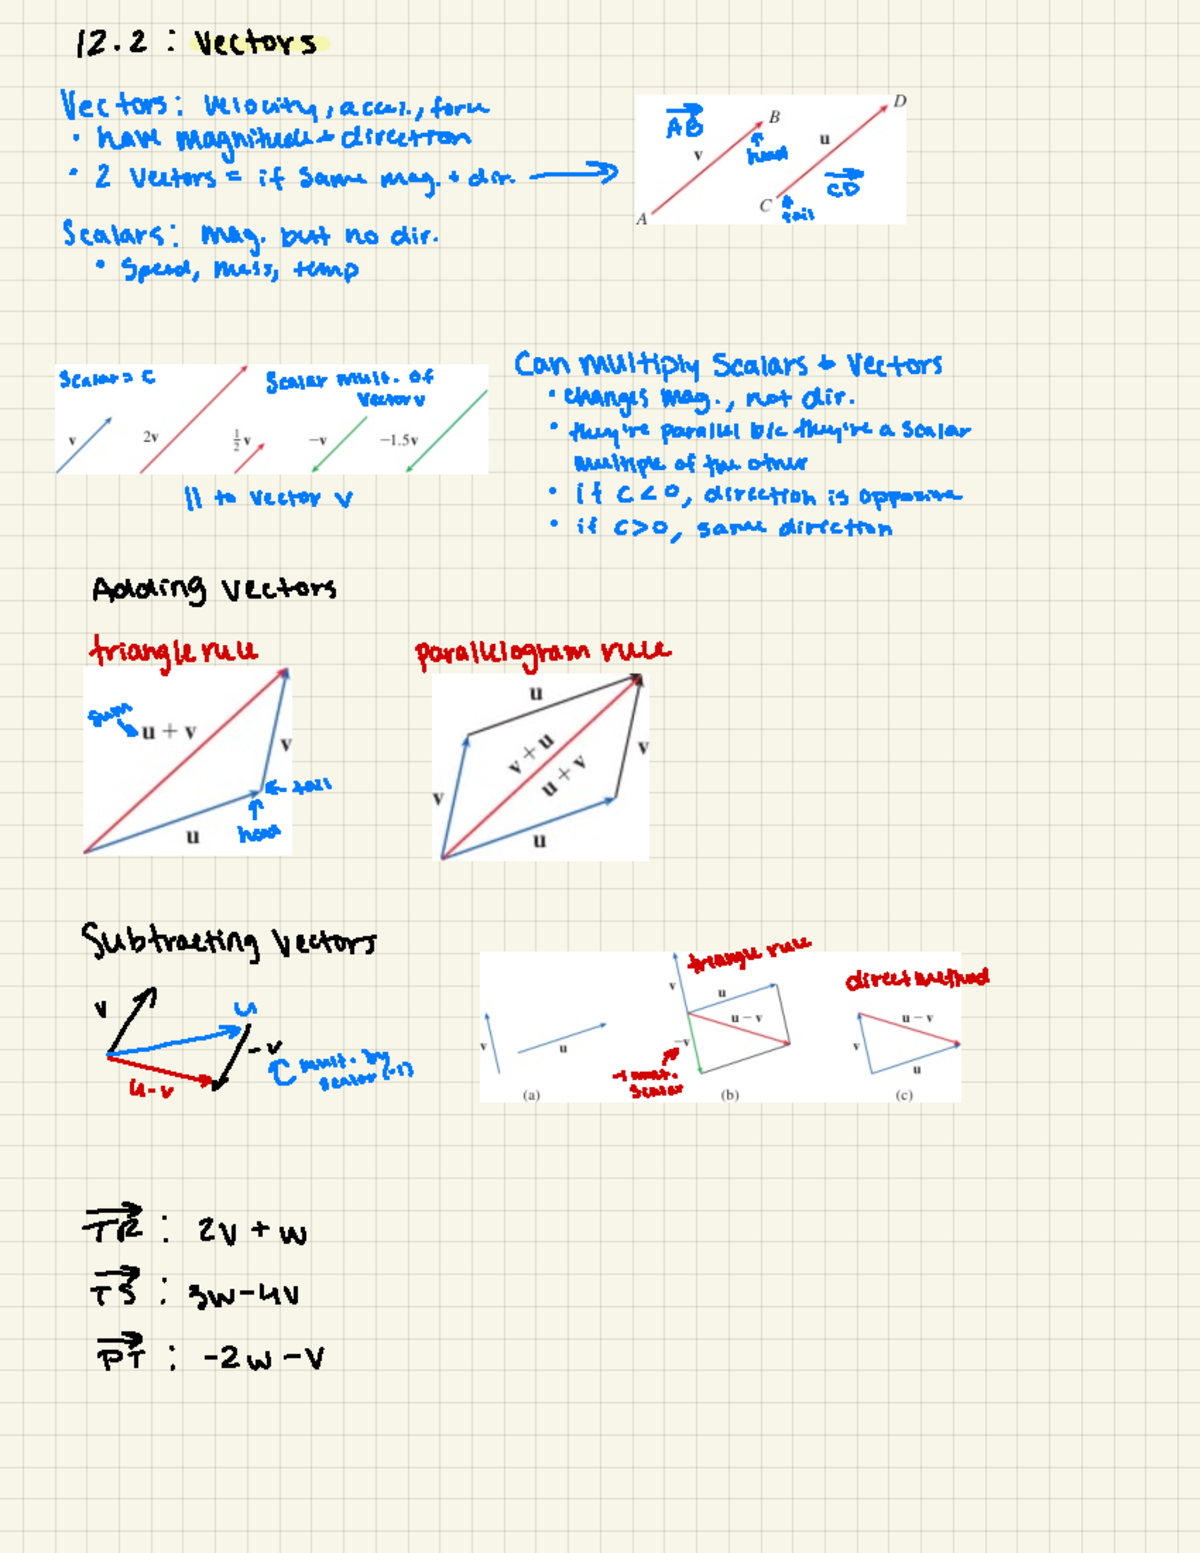 12.2 : Vectors
Vectors: velocity, accel., force
• have magnitude + direction
• 2 vectors = if same mag. + dir.
AB
B
D
v
head
u
CD
A
C
tail
Scalars: mag. but no dir.
• speed, mass, temp
Scalar = c
Scalar mult. of
vector v
v
2v
½v
−v
−1.5v
|| to vector v
Can multiply Scalars + Vectors
• changes mag., not dir.
• they're parallel b/c they're a scalar
multiple of the other
• if c<0, direction is opposite
• if c>0, same direction
Adding vectors
triangle rule
sum
u + v
v
tail
head
u
parallelogram rule
u
v + u
u + v
v
v
u
Subtracting Vectors
v
u
-v
mult. by
scalar (-1)
u-v
v
u
(a)
triangle rule
v
u
u − v
−v
-1 mult.
scalar
(b)
direct method
u − v
v
u
(c)
TR : 2v + w
TS : 3w-4v
PT : -2w-v